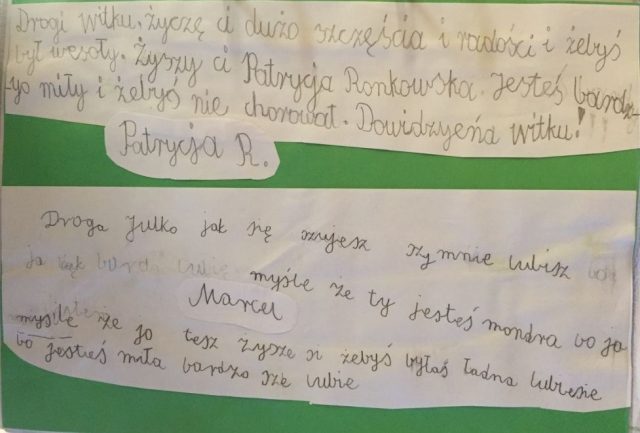 Drogi witku, życzę ci dużo szczęścia i radości i żebyś
był wesoły. Żyszy ci Patrycja Ronkowska. Jesteś bardz-
-yo miły i żebyś nie chorował. Dowidzyeńa witku!
Patrycja R.
Droga Julko jak się szujesz szy mnie lubisz bo
ja cię bardo lubię myśle że ty jesteś mondra bo ja
Marcel
myśle że jo tesz żysze ci żebyś byłaś ładna lubiesie
bo jesteś miła bardzo sze lubie